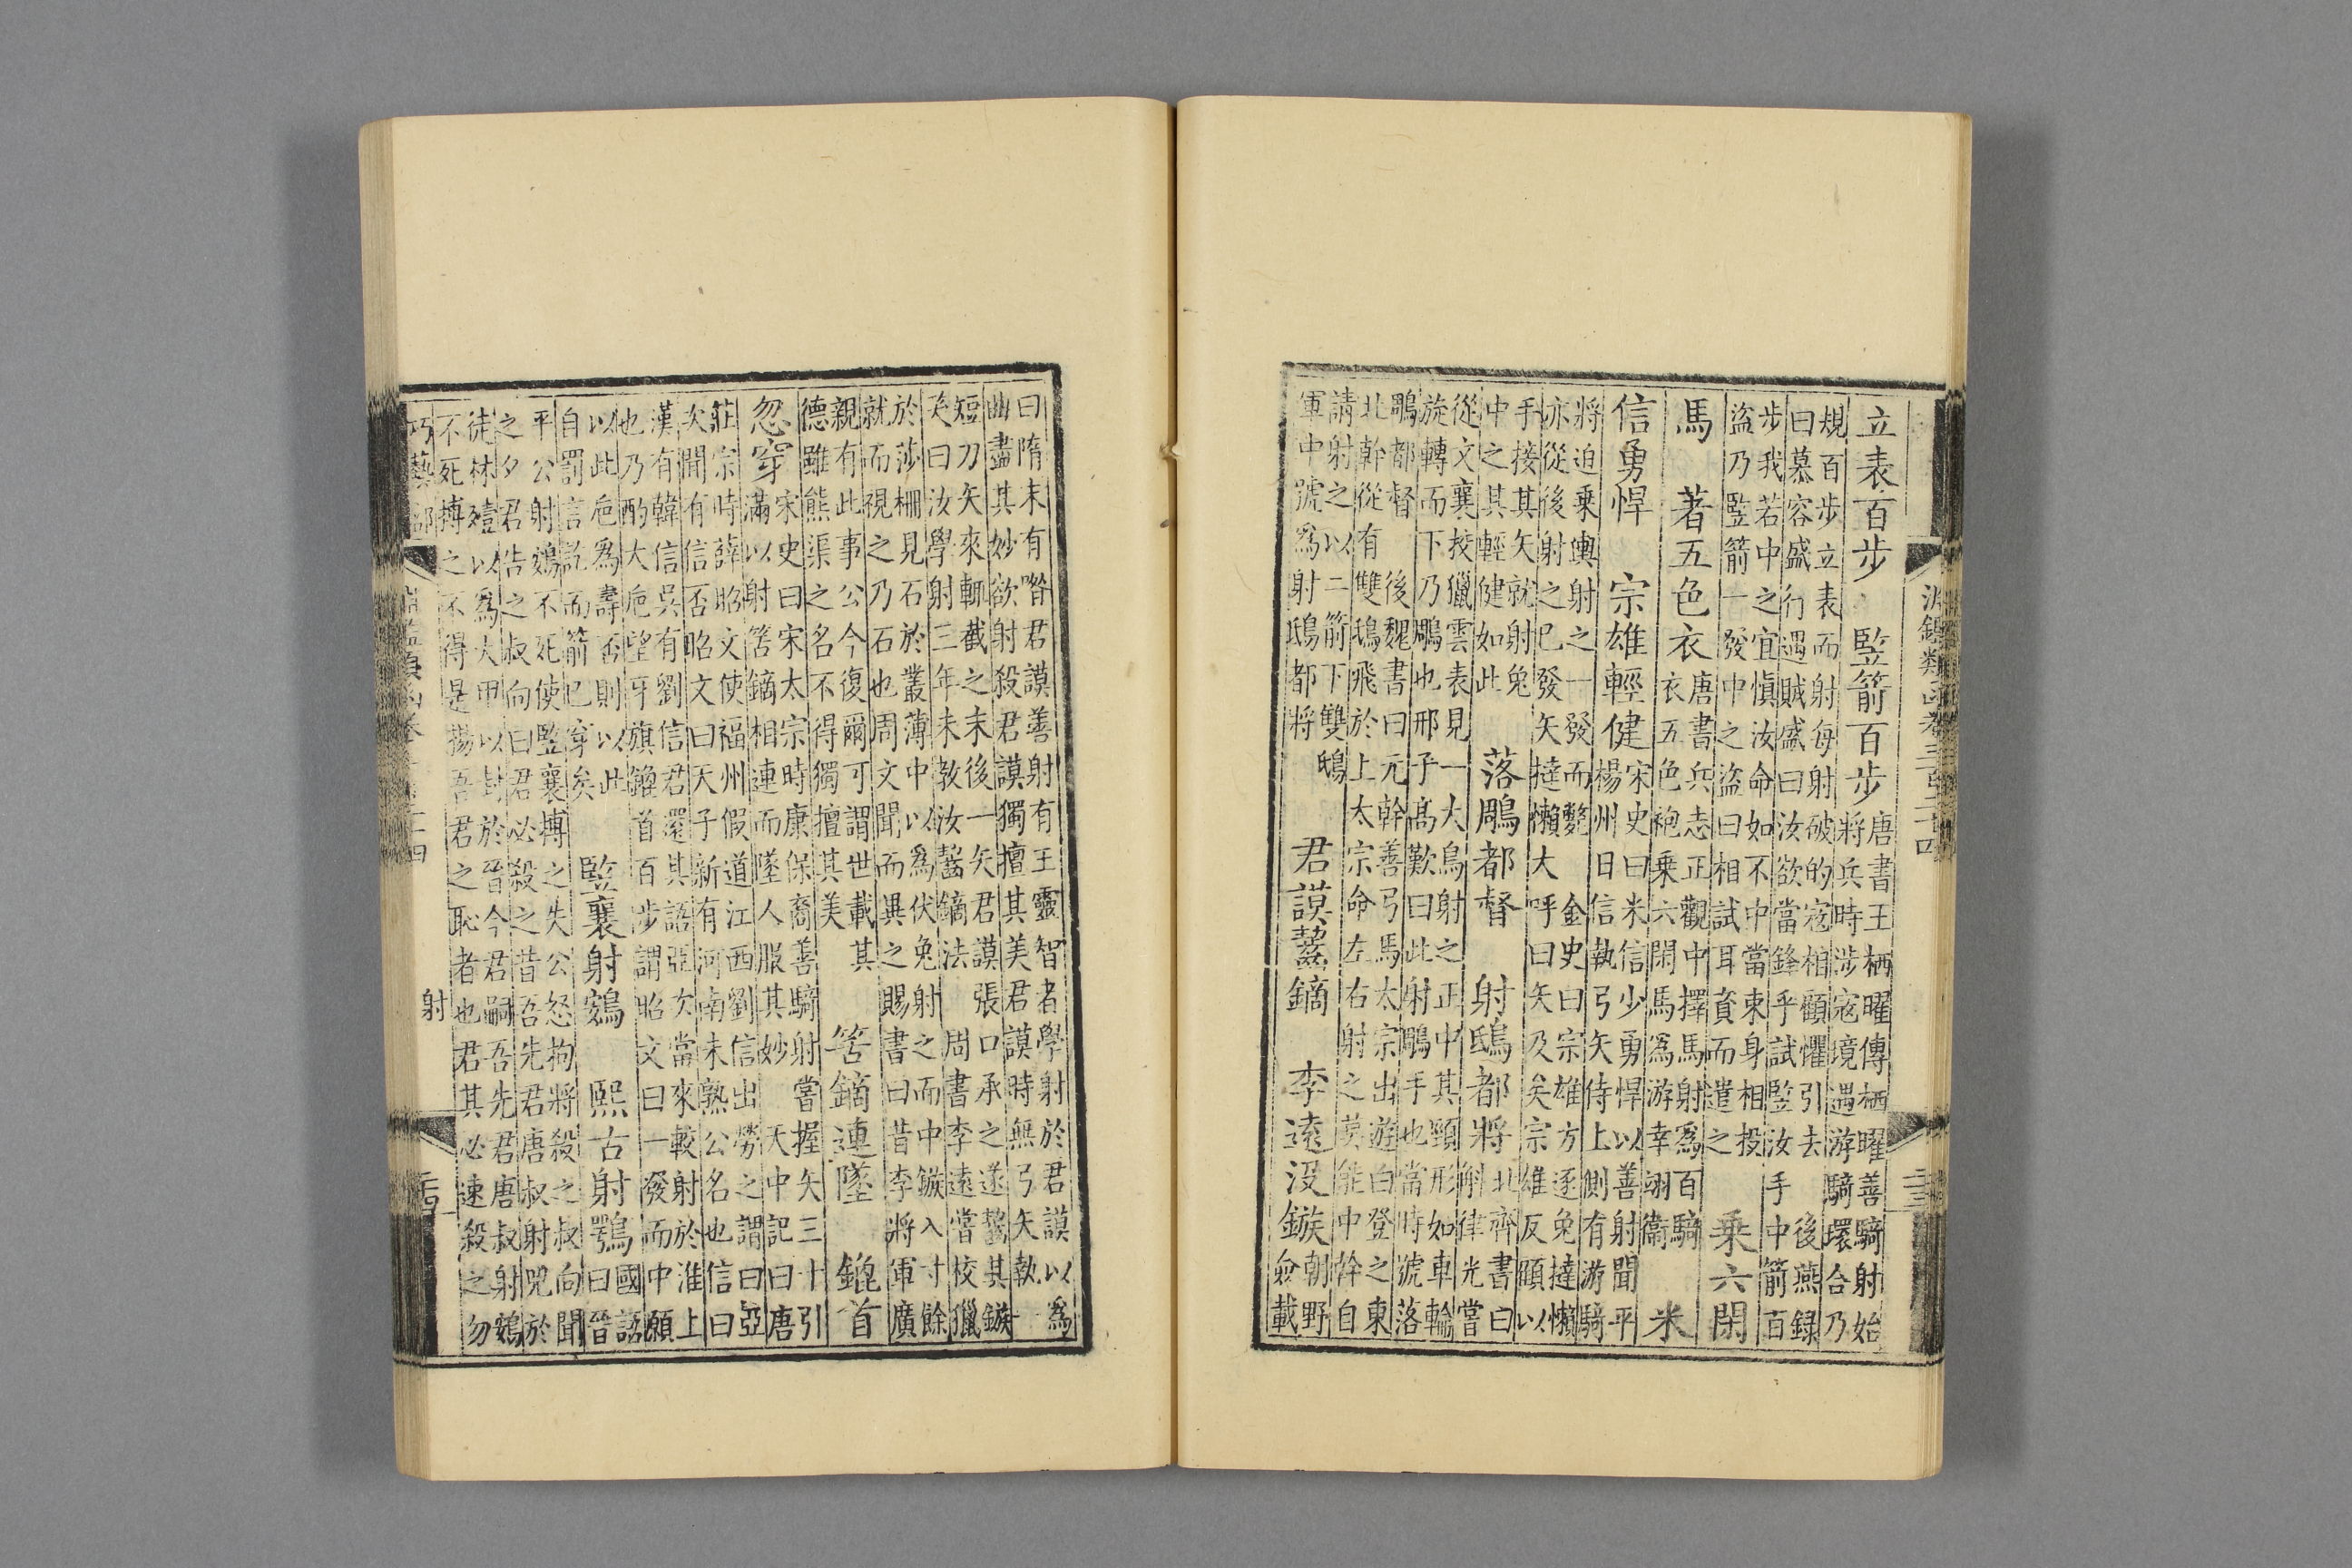 淵鑑類函卷三百二十四 二十三
立表百步 竪箭百步 唐書王栖曜傳栖曜善騎射始
將兵時涉寇境遇游騎環合乃
規百步立表而射每射破的寇相顧懼引去 後燕録
曰慕容盛行遇賊盛曰汝欲當鋒乎試竪汝手中箭百
步我若中之宜愼汝命如不中當束身相投
盜乃竪箭一發中之盜曰相試耳資而遣之 乗六閑
馬 著五色衣 唐書兵志正觀中擇馬射爲百騎
衣五色袍乗六閑馬爲游幸翊衞 米
信勇悍 宗雄輕健 宋史曰米信少勇悍以善射聞平
楊州日信執弓矢侍上側有游騎
將迫乗輿射之一發而斃 金史曰宗雄方逐兔撻懶
亦從後射之已發矢撻懶大呼曰矢及矣宗雄反頥以
手接其矢就射兔
中之其輕健如此 落鵰都督 射鴟都將 北齊書曰
斛律光嘗
從文襄挍獵雲表見一大鳥射之正中其頸形如車輪
旋轉而下乃鵰也邢子髙歎曰此射鵰手也當時號落
鵰都督 後魏書曰元幹善弓馬太宗出遊白登之東
北幹從有雙鴟飛於上太宗命左右射之莫能中幹自
請射之以二箭下雙鴟
軍中號爲射鴟都將 君謨齧鏑 李遠沒鏃 朝野
僉載
曰隋末有喒君謨善射有王靈智者學射於君謨以爲
曲盡其妙欲射殺君謨獨擅其美君謨時無弓矢執一
短刀矢來輒截之末後一矢君謨張口承之遂齧其鏃
笑曰汝學射三年未敎汝齧鏑法 周書李遠嘗校獵
於莎柵見石於叢薄中以爲伏兔射之而中鏃入寸餘
就而視之乃石也周文聞而異之賜書曰昔李將軍廣
親有此事公今復爾可謂世載其
德雖熊渠之名不得獨擅其美 筈鏑連墜 鎞首
忽穿 宋史曰宋太宗時康保裔善騎射嘗握矢三十引
滿以射筈鏑相連而墜人服其妙 天中記曰唐
莊宗時薛昭文使福州假道江西劉信出勞之謂曰亞
次聞有信否昭文曰天子新有河南未熟公名也信曰
漢有韓信吳有劉信君還其語亞次當來較射於淮上
也乃酌大巵望牙旗鎞首百步謂昭文曰一發而中願
以此巵爲壽否則以此
自罰言訖而箭已穿矣 竪襄射鷃 熙古射鶚 國語
曰晉
平公射鷃不死使竪襄搏之失公怒拘將殺之叔向聞
之夕君告之叔向曰君必殺之昔吾先君唐叔射兕於
徒林殪以爲大甲以封於晉今君嗣吾先君唐叔射鷃
不死搏之不得是揚吾君之恥者也君其必速殺之勿
巧藝部 射